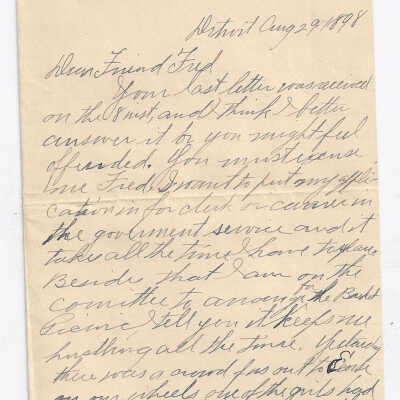 Detroit Aug 29/1898
Dear Friend Fred
Your last letter was received
on the 8 inst, and I think I better
answer it or you might feel
offended. You must excuse
me Fred, I want to put my appli-
cation in for clerk or carrier in
the government service and it
take all the time I have to
Beside that I am on the
comittee to arrange for the
Picinic I tell you it keeps me
hustling all the time.
there was a crowd of us out to
on our wheels one of the girls